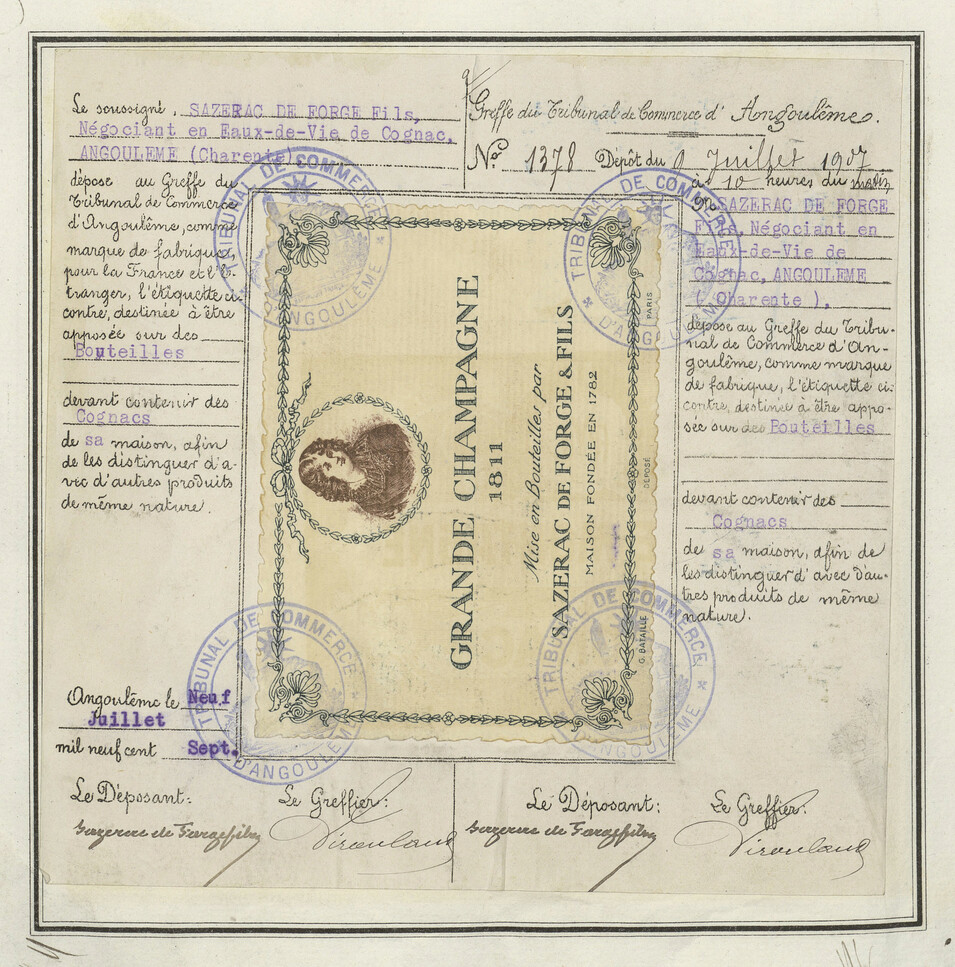 Le soussigné, SAZERAC DE FORGE Fils,
Négociant en Eaux-de-Vie de Cognac,
ANGOULEME (Charente)
dépose au Greffe du
Tribunal de Commerce
d'Angoulême, comme
marque de fabrique,
pour la France et l'É-
tranger, l'étiquette ci-
contre, destinée à être
apposée sur des
Bouteilles
devant contenir des
Cognacs
de sa maison, afin
de les distinguer d'a-
vec d'autres produits
de même nature.
Angoulême le Neuf
Juillet
mil neuf cent Sept.
Le Déposant:
Sazerac de Forge fils
Le Greffier:
GRANDE CHAMPAGNE
1811
Mise en Bouteilles par
SAZERAC DE FORGE & FILS
MAISON FONDÉE EN 1782
G. BATAILLE
DÉPOSÉ
PARIS
TRIBUNAL DE COMMERCE
D'ANGOULEME
TRIBUNAL DE COMMERCE
D'ANGOULEME
TRIBUNAL DE COMMERCE
D'ANGOULEME
TRIBUNAL DE COMMERCE
D'ANGOULEME
Greffe du Tribunal de Commerce d'Angoulême.
No 1378 Dépôt du 9 Juillet 1907
à 10 heures du matin
SAZERAC DE FORGE
Fils, Négociant en
Eaux-de-Vie de
Cognac, ANGOULEME
(Charente),
dépose au Greffe du Tribu-
nal de Commerce d'An-
goulême, comme marque
de fabrique, l'étiquette ci-
contre, destinée à être appo-
sée sur des Bouteilles
devant contenir des
Cognacs
de sa maison, afin de
les distinguer d'avec d'au-
tres produits de même
nature.
Le Déposant:
Sazerac de Forge fils
Le Greffier: